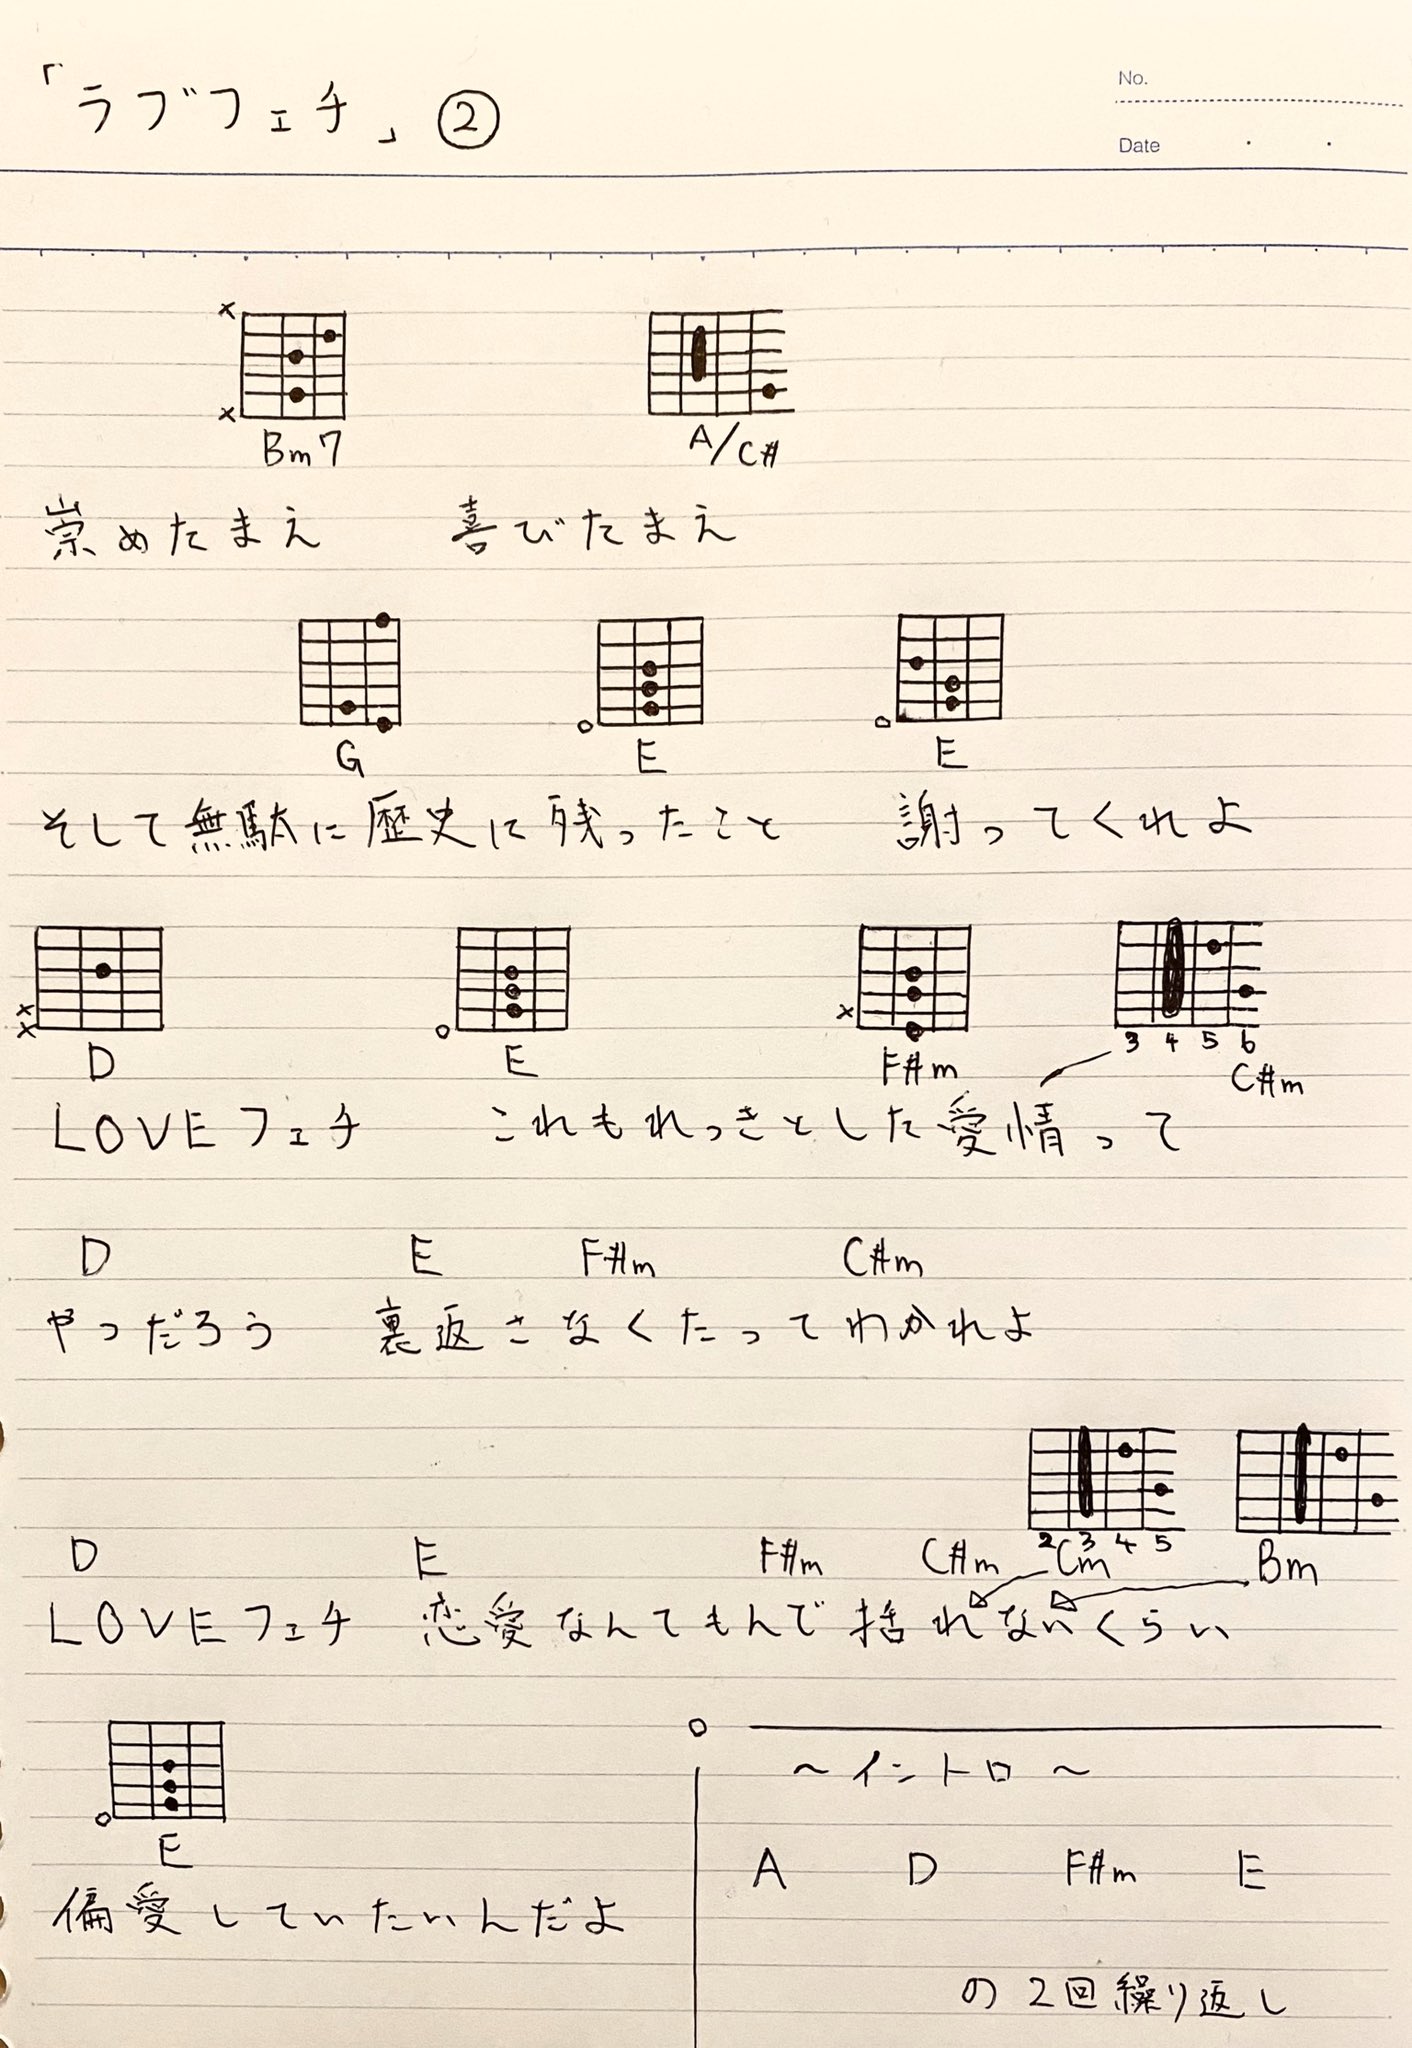 「ラブフェチ」②
No.
Date
× ×
Bm7 A/C#
崇めたまえ 喜びたまえ
○ ○
G E E
そして無駄に歴史に残ったこと 謝ってくれよ
× × ○ ×
3 4 5 6
D E F#m C#m
LOVEフェチ これもれっきとした愛情って
D E F#m C#m
やっだろう 裏返さなくたってわかれよ
2 3 4 5
D E F#m C#m Cm Bm
LOVEフェチ 恋愛なんてもんで括れないくらい
○
E
偏愛していたいんだよ
～イントロ～
A D F#m E
の2回繰り返し